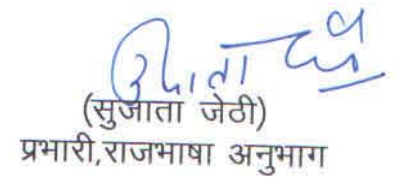 (सुजाता जेठी)
प्रभारी,राजभाषा अनुभाग